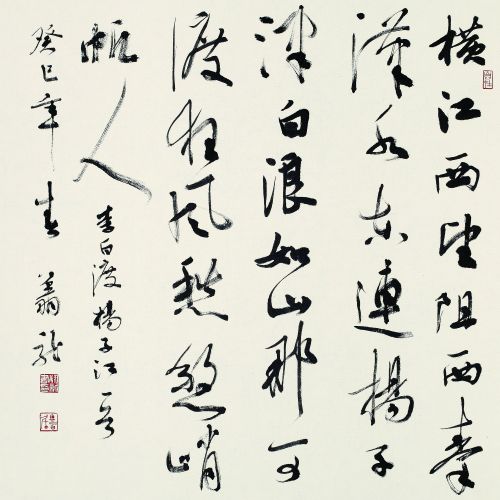 橫江西望阻西秦
漢水东連楊子
津白浪如山那可
渡狂风愁煞峭
帆人
李白渡楊子江一首
癸巳年春 翁